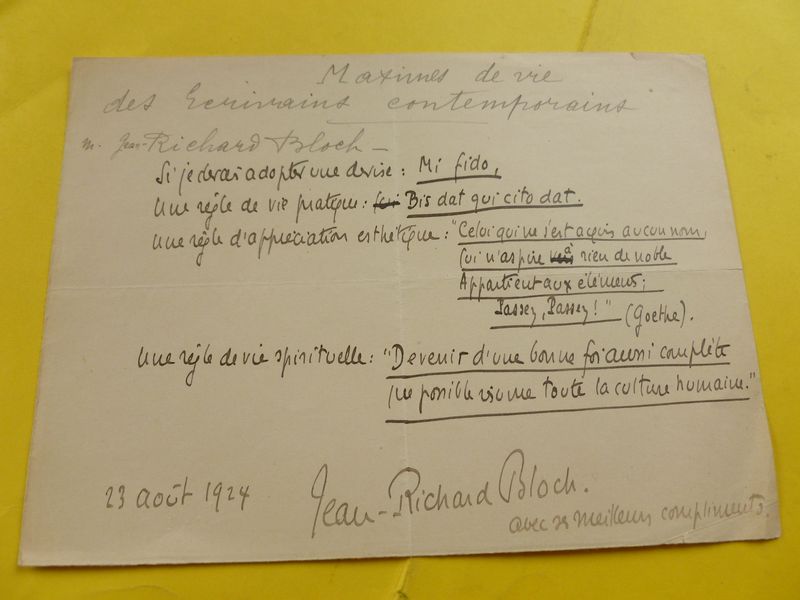 Maximes de vie
des Ecrivains contemporains
m. Jean-Richard Bloch —
Si je devais adopter une devise : Mi fido,
Une règle de vie pratique : Bis dat qui cito dat.
Une règle d'appréciation esthétique : "Celui qui ne s'est acquis aucun nom,
Qui n'aspire à rien de noble
Appartient aux éléments ;
Passez, Passez ! " (Goethe).
Une règle de vie spirituelle : "Devenir d'une bonne foi aussi complète
que possible résume toute la culture humaine."
23 août 1924
Jean-Richard Bloch.
avec ses meilleurs compliments.